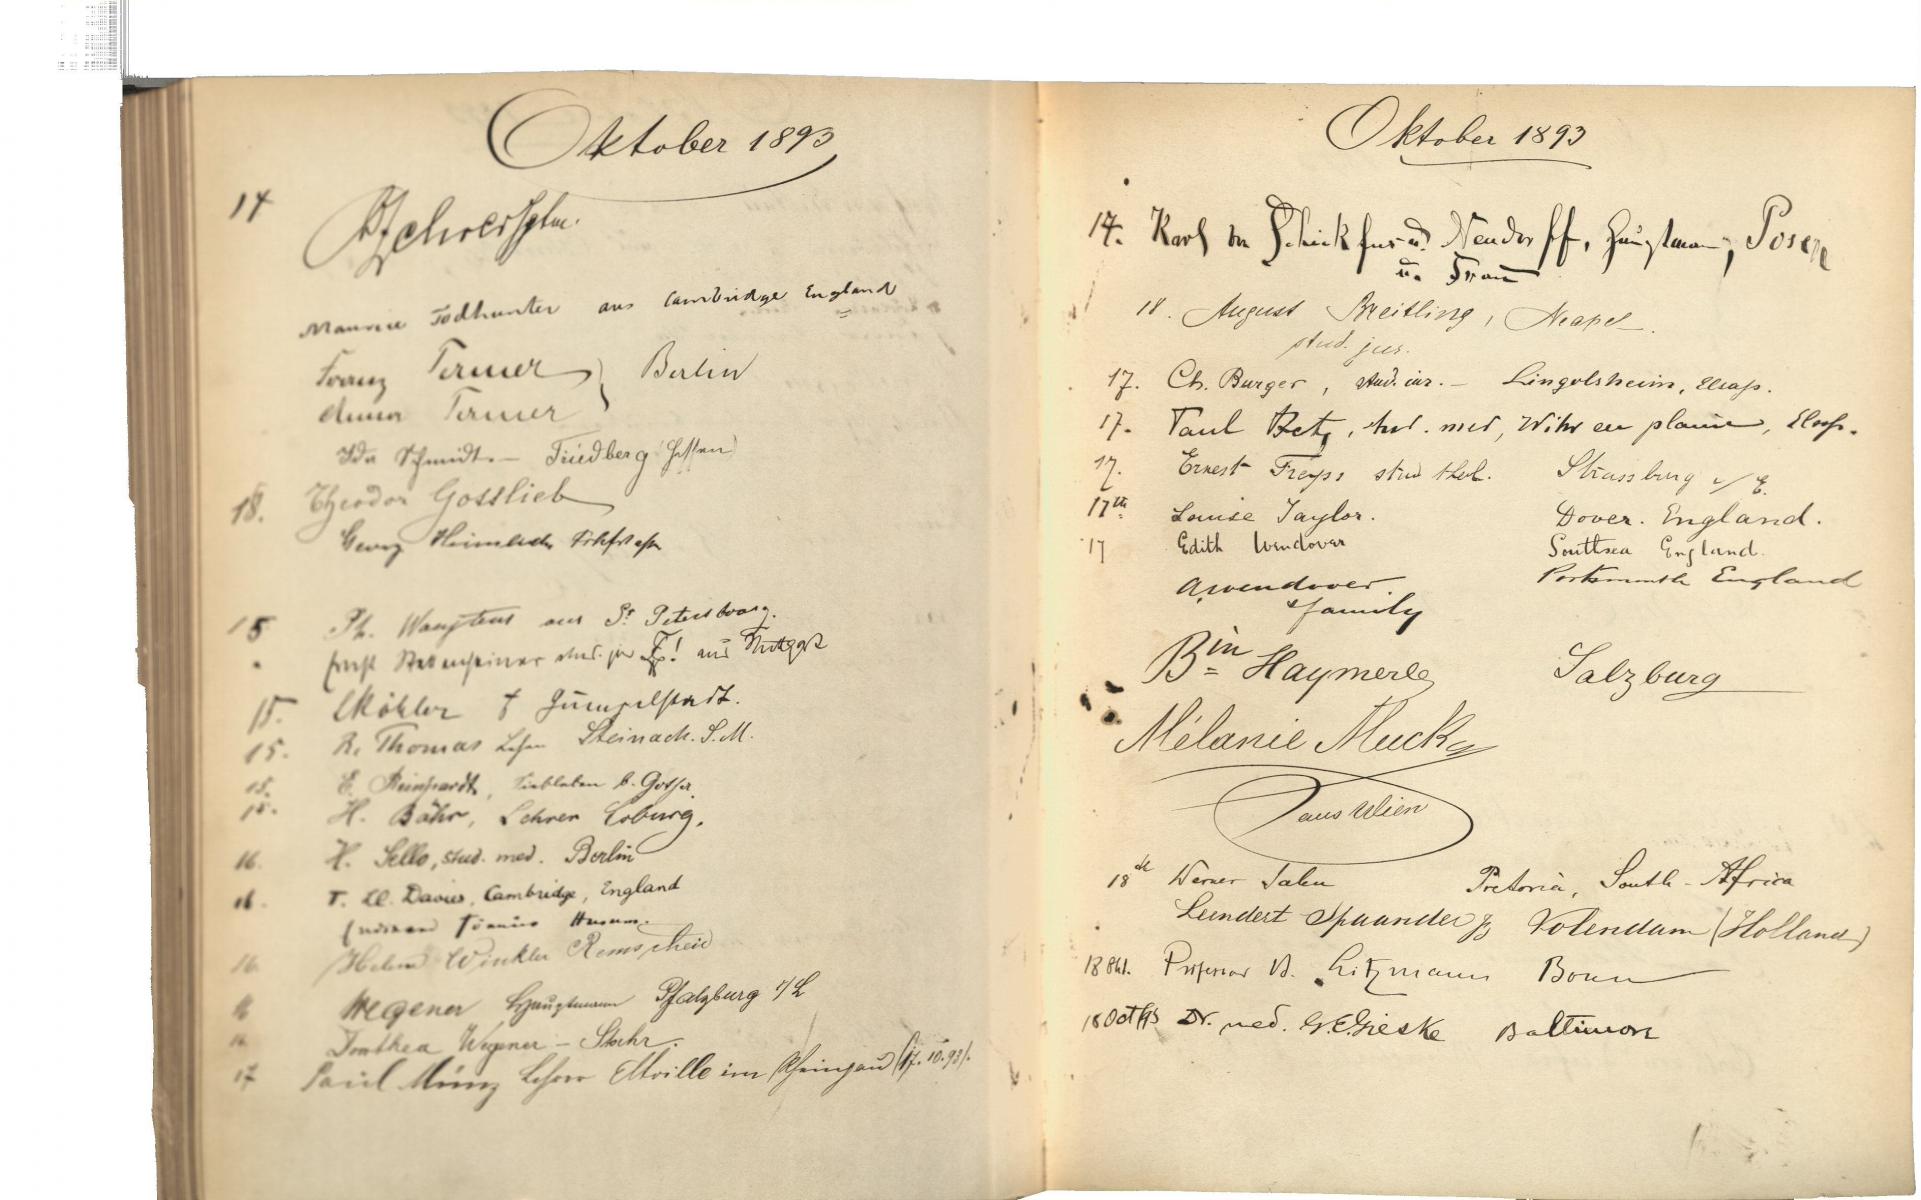 Oktober 1893
14
Maurice Todhunter aus Cambridge England
Franz Termer } Berlin
Anna Termer
Ida Schmidt. – Friedberg (Hessen)
18. Theodor Gottlieb
Georg
15 Ph. aus St. Petersburg.
" Ernst stud. jur aus Stuttgart
15. Köhler Gümpelstadt.
15. R. Thomas Lehrer Steinach. S. M.
15. E. Reinhardt, Siebleben b. Gotha.
15. H. Bähr, Lehrer Coburg.
16. H. Sello, stud. med. Berlin
16. T. Ll. Davies, Cambridge, England
Ferdinand Tönnies Husum.
16. Helene Winkler Remscheid
16 Wegener Hauptmann Pfalzburg i/L
16. Dorothea Wegener – Stuhr.
17 Paul Münz Lehrer Eltville im Rheingau (17.10.93).
Oktober 1893
17. Karl von Schickfus u. Neudorff, Hauptmann, Posen
u. Frau
18. August Breitling, Neapel.
stud. jur.
17. Ch. Burger, stud. iur. – Lingolsheim, Elsass.
17. Paul Betz, stud. med, Wihr en plaine, Elsass.
17. Ernest Freyss stud theol. Strassburg i/E.
17th Louise Taylor. Dover. England.
17 Edith Wendover Southsea England.
A Wendover. Portsmouth England
& family
Bin Haymerle Salzburg
Mélanie Muck
aus Wien
18th Werner Pretoria, South-Africa
Leendert Spaander Jz Volendam (Holland)
18 Okt. Professor B. Litzmann Bonn
18 Oct 93 Dr. med. G. E. Gieske Baltimore